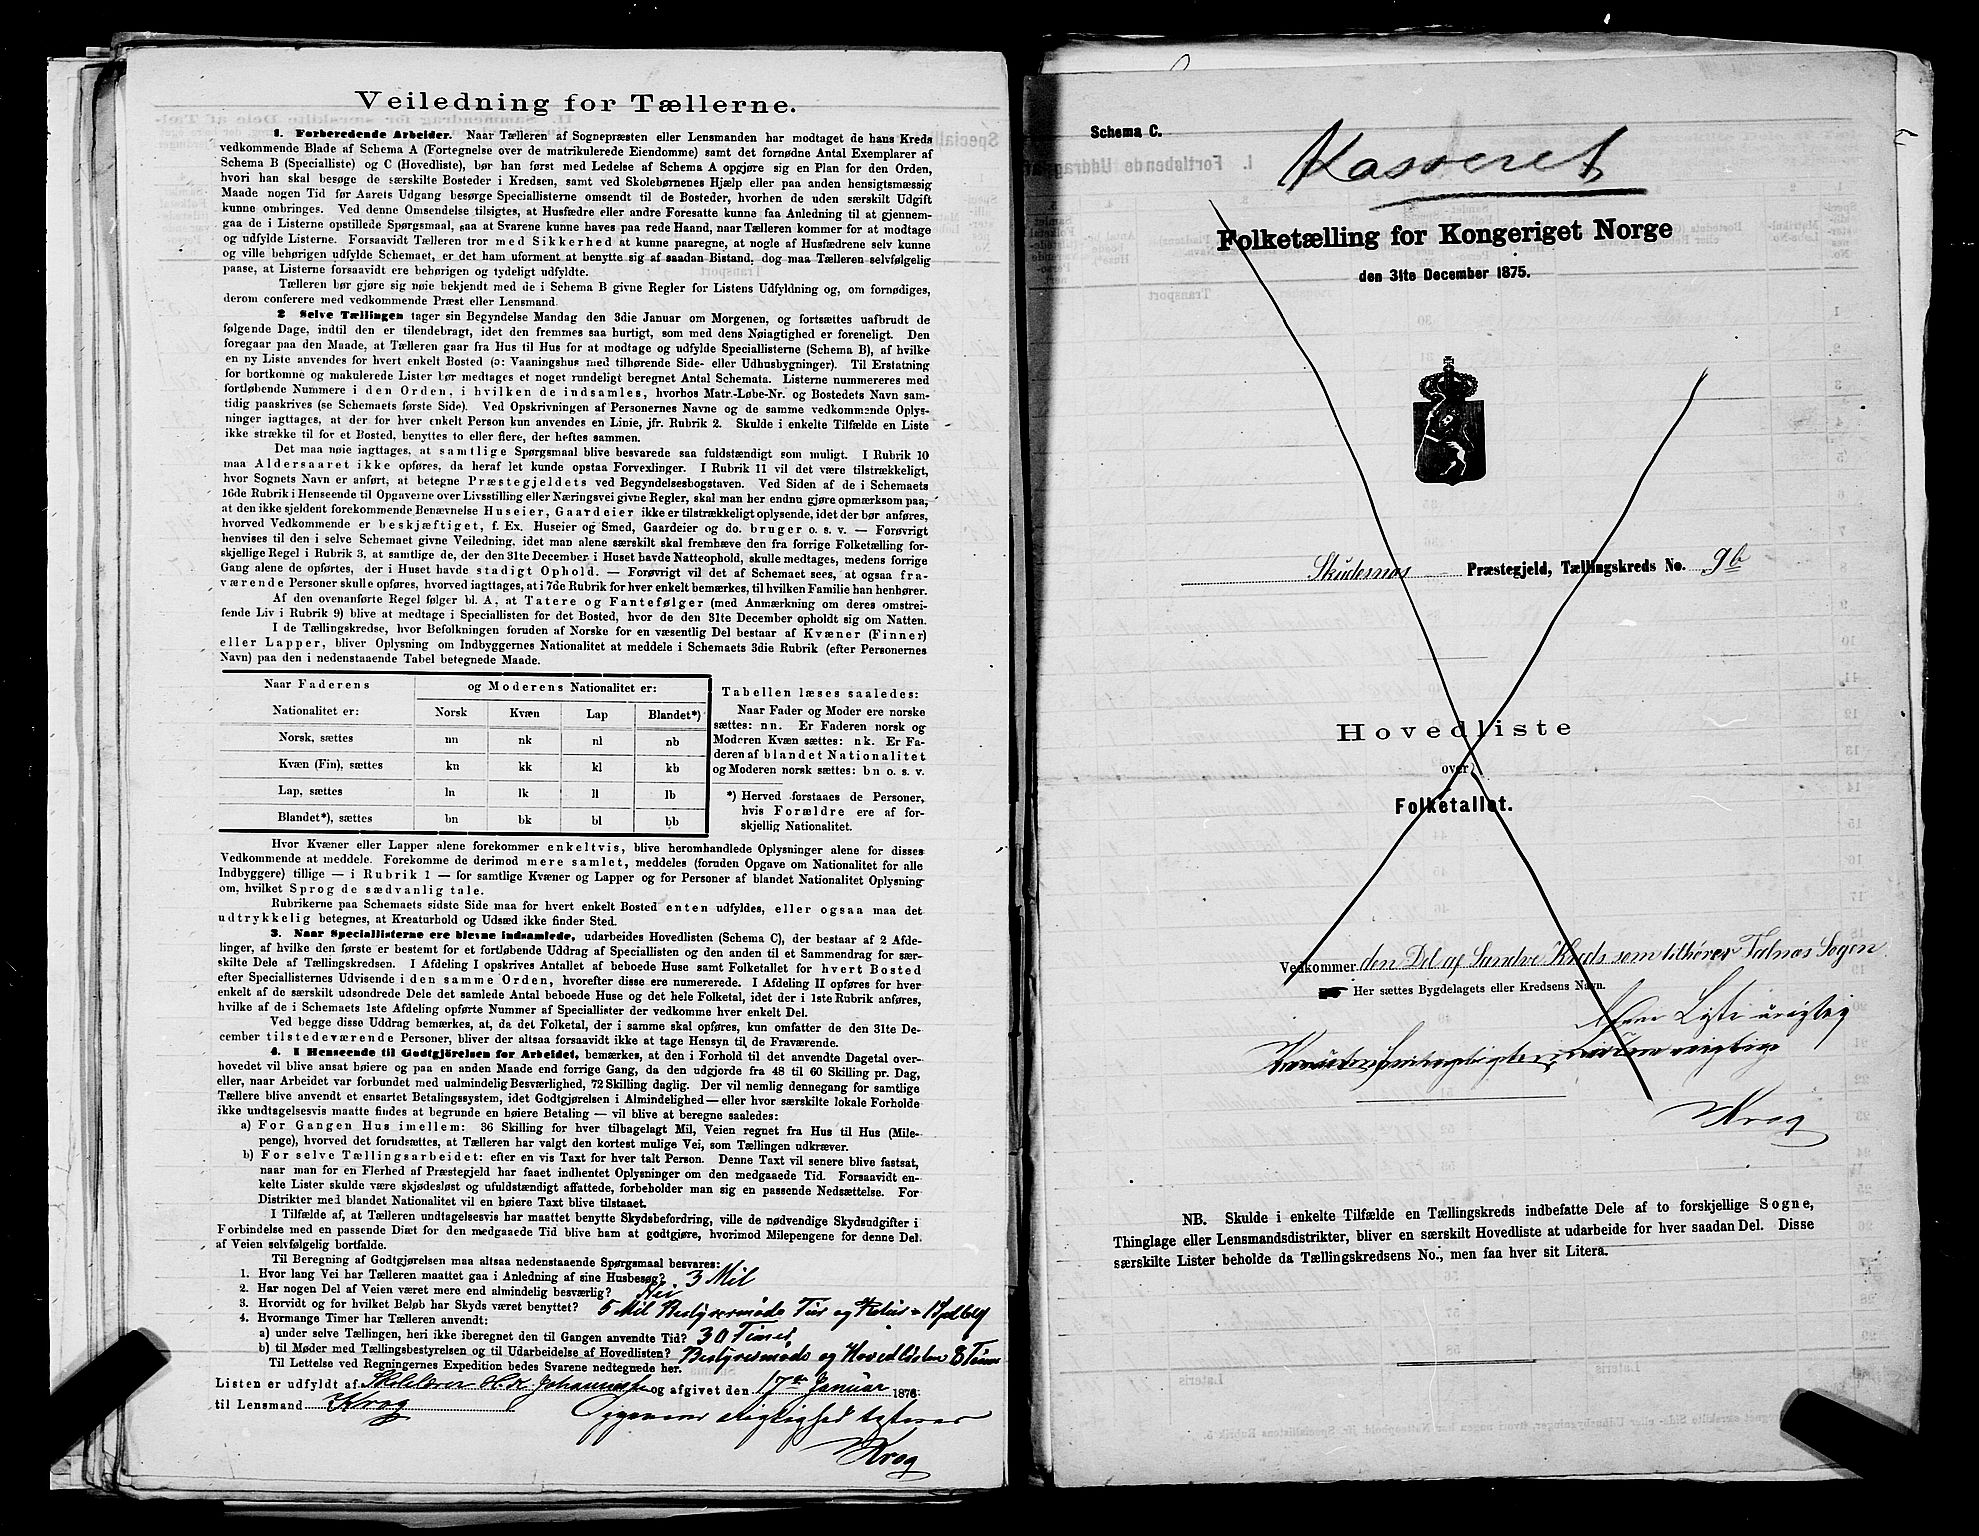 Veiledning for Tællerne.
1. Forberedende Arbeider. Naar Tælleren af Sognepræsten eller Lensmanden har modtaget de hans Kreds
vedkommende Blade af Schema A (Fortegnelse over de matrikulerede Eiendomme) samt det fornødne Antal Exemplarer af
Schema B (Specialliste) og C (Hovedliste), bør han først med Ledelse af Schema A opgjøre sig en Plan for den Orden,
hvori han skal besøge de særskilte Bosteder i Kredsen, samt ved Skolebørnenes Hjælp eller paa anden hensigtsmæssig
Maade nogen Tid før Aarets Udgang besørge Speciallisterne omsendt til de Bosteder, hvorhen de uden særskilt Udgift
kunne ombringes. Ved denne Omsendelse tilsigtes, at Husfædre eller andre Foresatte kunne faa Anledning til at gjennem-
gaa de i Listerne opstillede Spørgsmaal, saa at Svarene kunne haves paa rede Haand, naar Tælleren kommer for at modtage
og udfylde Listerne. Forsaavidt Tælleren tror med Sikkerhed at kunne paaregne, at nogle af Husfædrene selv kunne
og ville behørigen udfylde Schemaet, er det ham uforment at benytte sig af saadan Bistand, dog maa Tælleren selvfølgelig
paase, at Listerne forsaavidt ere behørigen og tydeligt udfyldte.
Tælleren bør gjøre sig nøie bekjendt med de i Schema B givne Regler for Listens Udfyldning og, om fornødiges,
derom conferere med vedkommende Præst eller Lensmand.
2 Selve Tællingen tager sin Begyndelse Mandag den 3die Januar om Morgenen, og fortsættes uafbrudt de
følgende Dage, indtil den er tilendebragt, idet den fremmes saa hurtigt, som med dens Nøiagtighed er foreneligt. Den
foregaar paa den Maade, at Tælleren gaar fra Hus til Hus for at modtage og udfylde Speciallisterne (Schema B), af hvilke
en ny Liste anvendes for hvert enkelt Bosted (ɔ: Vaaningshus med tilhørende Side- eller Udhusbygninger). Til Erstatning
for bortkomne og makulerede Lister bør medtages et noget rundeligt beregnet Antal Schemata. Listerne nummereres med
fortløbende Nummere i den Orden, i hvilken de indsamles, hvorhos Matr.-Løbe-Nr. og Bostedets Navn sam-
tidig paaskrives (se Schemaets første Side). Ved Opskrivningen af Personernes Navne og de samme vedkommende Oplys-
ninger iagttages, at der for hver enkelt Person kun anvendes en Linie, jfr. Rubrik 2. Skulde i enkelte Tilfælde en Liste
ikke strække til for et Bosted, benyttes to eller flere, der heftes sammen.
Det maa nøie iagttages, at samtlige Spørgsmaal blive besvarede saa fuldstændigt som muligt. I Rubrik 10
maa Aldersaaret ikke opføres, da heraf let kunde opstaa Forvexlinger. I Rubrik 11 vil det være tilstrækkeligt,
hvor Sognets Navn er anført, at betegne Præstegjeldets ved Begyndelsesbogstaven. Ved Siden af de i Schemaets
16de Rubrik i Henseende til Opgaverne over Livsstilling eller Næringsvei givne Regler, skal man her endnu gjøre opmærksom paa,
at den ikke sjeldent forekommende Benævnelse Huseier, Gaardeier ikke er tilstrækkeligt oplysende, idet der bør anføres,
hvorved Vedkommende er beskjæftiget, f. Ex. Huseier og Smed, Gaardeier og do. bruger o. s. v. — Forøvrigt
henvises til den i selve Schemaet givne Veiledning, idet man alene særskilt skal fremhæve den fra forrige Folketælling for-
skjellige Regel i Rubrik 3, at samtlige de, der den 31te December i Huset havde Natteophold, skulle medtages, medens forrige
Gang alene de opførtes, der i Huset havde stadigt Ophold. — Forøvrigt vil det af Schemaet sees, at ogsaa fra-
værende Personer skulle opføres, hvorved iagttages, at i 7de Rubrik for hver enkelt bemærkes, til hvilken Familie han henhører.
Af den ovenanførte Regel følger bl. A, at Tatere og Fantefølger (med Anmærkning om deres omstrei-
fende Liv i Rubrik 9) blive at medtage i Speciallisten for det Bosted, hvor de den 31te December opholdt sig om Natten.
I de Tællingskredse, hvor Befolkningen foruden af Norske for en væsentlig Del bestaar af Kvæner (Finner)
eller Lapper, bliver Oplysning om Indbyggernes Nationalitet at meddele i Schemaets 3die Rubrik (efter Personernes
Navn) paa den i nedenstaaende Tabel betegnede Maade.
Naar Faderens | og Moderens Nationalitet er:
Nationalitet er: | Norsk | Kvæn | Lap | Blandet*)
Norsk, sættes | nn | nk | nl | nb
Kvæn (Fin), sættes | kn | kk | kl | kb
Lap, sættes | ln | lk | ll | lb
Blandet*), sættes | bn | bk | bl | bb
Tabellen læses saaledes:
Naar Fader og Moder ere norske
sættes: nn. Er Faderen norsk og
Moderen Kvæn sættes: nk. Er Fa-
deren af blandet Nationalitet
og Moderen norsk sættes: bn o. s. v.
*) Herved forstaaes de Personer,
hvis Forældre ere af for-
skjellig Nationalitet.
Hvor Kvæner eller Lapper alene forekommer enkeltvis, blive heromhandlede Oplysninger alene for disses
Vedkommende at meddele. Forekomme de derimod mere samlet, meddeles (foruden Opgave om Nationalitet for alle
Indbyggere) tillige — i Rubrik 1 — for samtlige Kvæner og Lapper og for Personer af blandet Nationalitet Oplysning
om, hvilket Sprog de sædvanlig tale.
Rubrikerne paa Schemaets sidste Side maa for hvert enkelt Bosted enten udfyldes, eller ogsaa maa det
udtrykkelig betegnes, at Kreaturhold og Udsæd ikke finder Sted.
3. Naar Speciallisterne ere blevne indsamlede, udarbeides Hovedlisten (Schema C), der bestaar af 2 Afde-
linger, af hvilke den første er bestemt for et fortløbende Uddrag af Speciallisten og den anden til et Sammendrag for sær-
skilte Dele af Tællingskredsen. I Afdeling I opskrives Antallet af beboede Huse samt Folketallet for hvert Bosted
efter Speciallisternes Udvisende i den samme Orden, hvorefter disse ere numererede. I Afdeling II opføres for hver
enkelt af de særskilt udsondrede Dele det samlede Antal beboede Huse og det hele Folketal, idet der i 1ste Rubrik anføres,
hvilke af de i Schemaets 1ste Afdeling opførte Nummer af Speciallister der vedkomme hver enkelt Del.
Ved begge disse Uddrag bemærkes, at, da det Folketal, der i samme skal opføres, kun omfatter de den 31te De-
cember tilstedeværende Personer, bliver der altsaa forsaavidt ikke at tage Hensyn til de Fraværende.
4. I Henseende til Godtgjörelsen for Arbeidet, bemærkes, at den i Forhold til det anvendte Dagetal over-
hovedet vil blive ansat høiere og paa en anden Maade end forrige Gang, da den udgjorde fra 48 til 60 Skilling pr. Dag,
eller, naar Arbeidet var forbundet med ualmindelig Besværlighed, 72 Skilling daglig. Der vil nemlig dennegang for samtlige
Tællere blive anvendt et ensartet Betalingssystem, idet Godtgjørelsen i Almindelighed — eller hvor særskilte lokale Forholde
ikke undtagelsesvis maatte findes at begrunde en høiere Betaling — vil blive at beregne saaledes:
a) For Gangen Hus imellem: 36 Skilling for hver tilbagelagt Mil, Veien regnet fra Hus til Hus (Mile-
penge), hvorved det forudsættes, at Tælleren har valgt den kortest mulige Vei, som Tællingen udkræver.
b) For selve Tællingsarbeidet: efter en vis Taxt for hver talt Person. Denne Taxt vil senere blive fastsat,
naar man for en Flerhed af Præstegjeld har faaet indhentet Oplysninger om den medgaaede Tid. Forsaavidt en-
kelte Lister skulde være skjødesløst og ufuldstændigt affattede, forbeholder man sig en passende Nedsættelse. For
Distrikter med blandet Nationalitet vil en høiere Taxt blive tilstaaet.
I Tilfælde af, at Tælleren undtagelsesvis har maattet benytte Skydsbefordring, ville de nødvendige Skydsudgifter i
Forbindelse med en passende Diæt for den medgaaede Tid blive ham at godtgjøre, hvorimod Milepengene for denne Del
af Veien selvfølgelig bortfalde.
Til Beregning af Godtgjørelsen maa altsaa nedenstaaende Spørgsmaal besvares:
1. Hvor lang Vei har Tælleren maattet gaa i Anledning af sine Husbesøg? 3 Mil
2. Har nogen Del af Veien været mere end almindelig besværlig? Nei
3. Hvorvidt og for hvilket Beløb har Skyds været benyttet? 5 Mil Bestyresmøde Tur og Retur
4. Hvormange Timer har Tælleren anvendt:
a) under selve Tællingen, heri ikke iberegnet den til Gangen anvendte Tid? 30 Timer
b) til Møder med Tællingsbestyrelsen og til Udarbeidelse af Hovedlisten? Bestyresmøde og Hovedlisten 8 Timer
Til Lettelse ved Regningernes Expedition bedes Svarene nedtegnede her.
Listen er udfyldt af og afgivet den 17de Januar 1876
til Lensmand Krog
Krog
Schema C.
Kasseret
Folketælling for Kongeriget Norge
den 31te December 1875.
Skudesnæs Præstegjeld, Tællingskreds No. 9b
Hovedliste
over
Folketallet.
Vedkommer den Del af Sandve Kreds som tilhører Falnæs Sogn
Her sættes Bygdelagets eller Kredsens Navn.
Liste urigtig
Krog
NB. Skulde i enkelte Tilfælde en Tællingskreds indbefatte Dele af to forskjellige Sogne,
Thinglage eller Lensmandsdistrikter, bliver en særskilt Hovedliste at udarbeide for hver saadan Del. Disse
særskilte Lister beholde da Tællingskredsens No., men faa hver sit Litera.